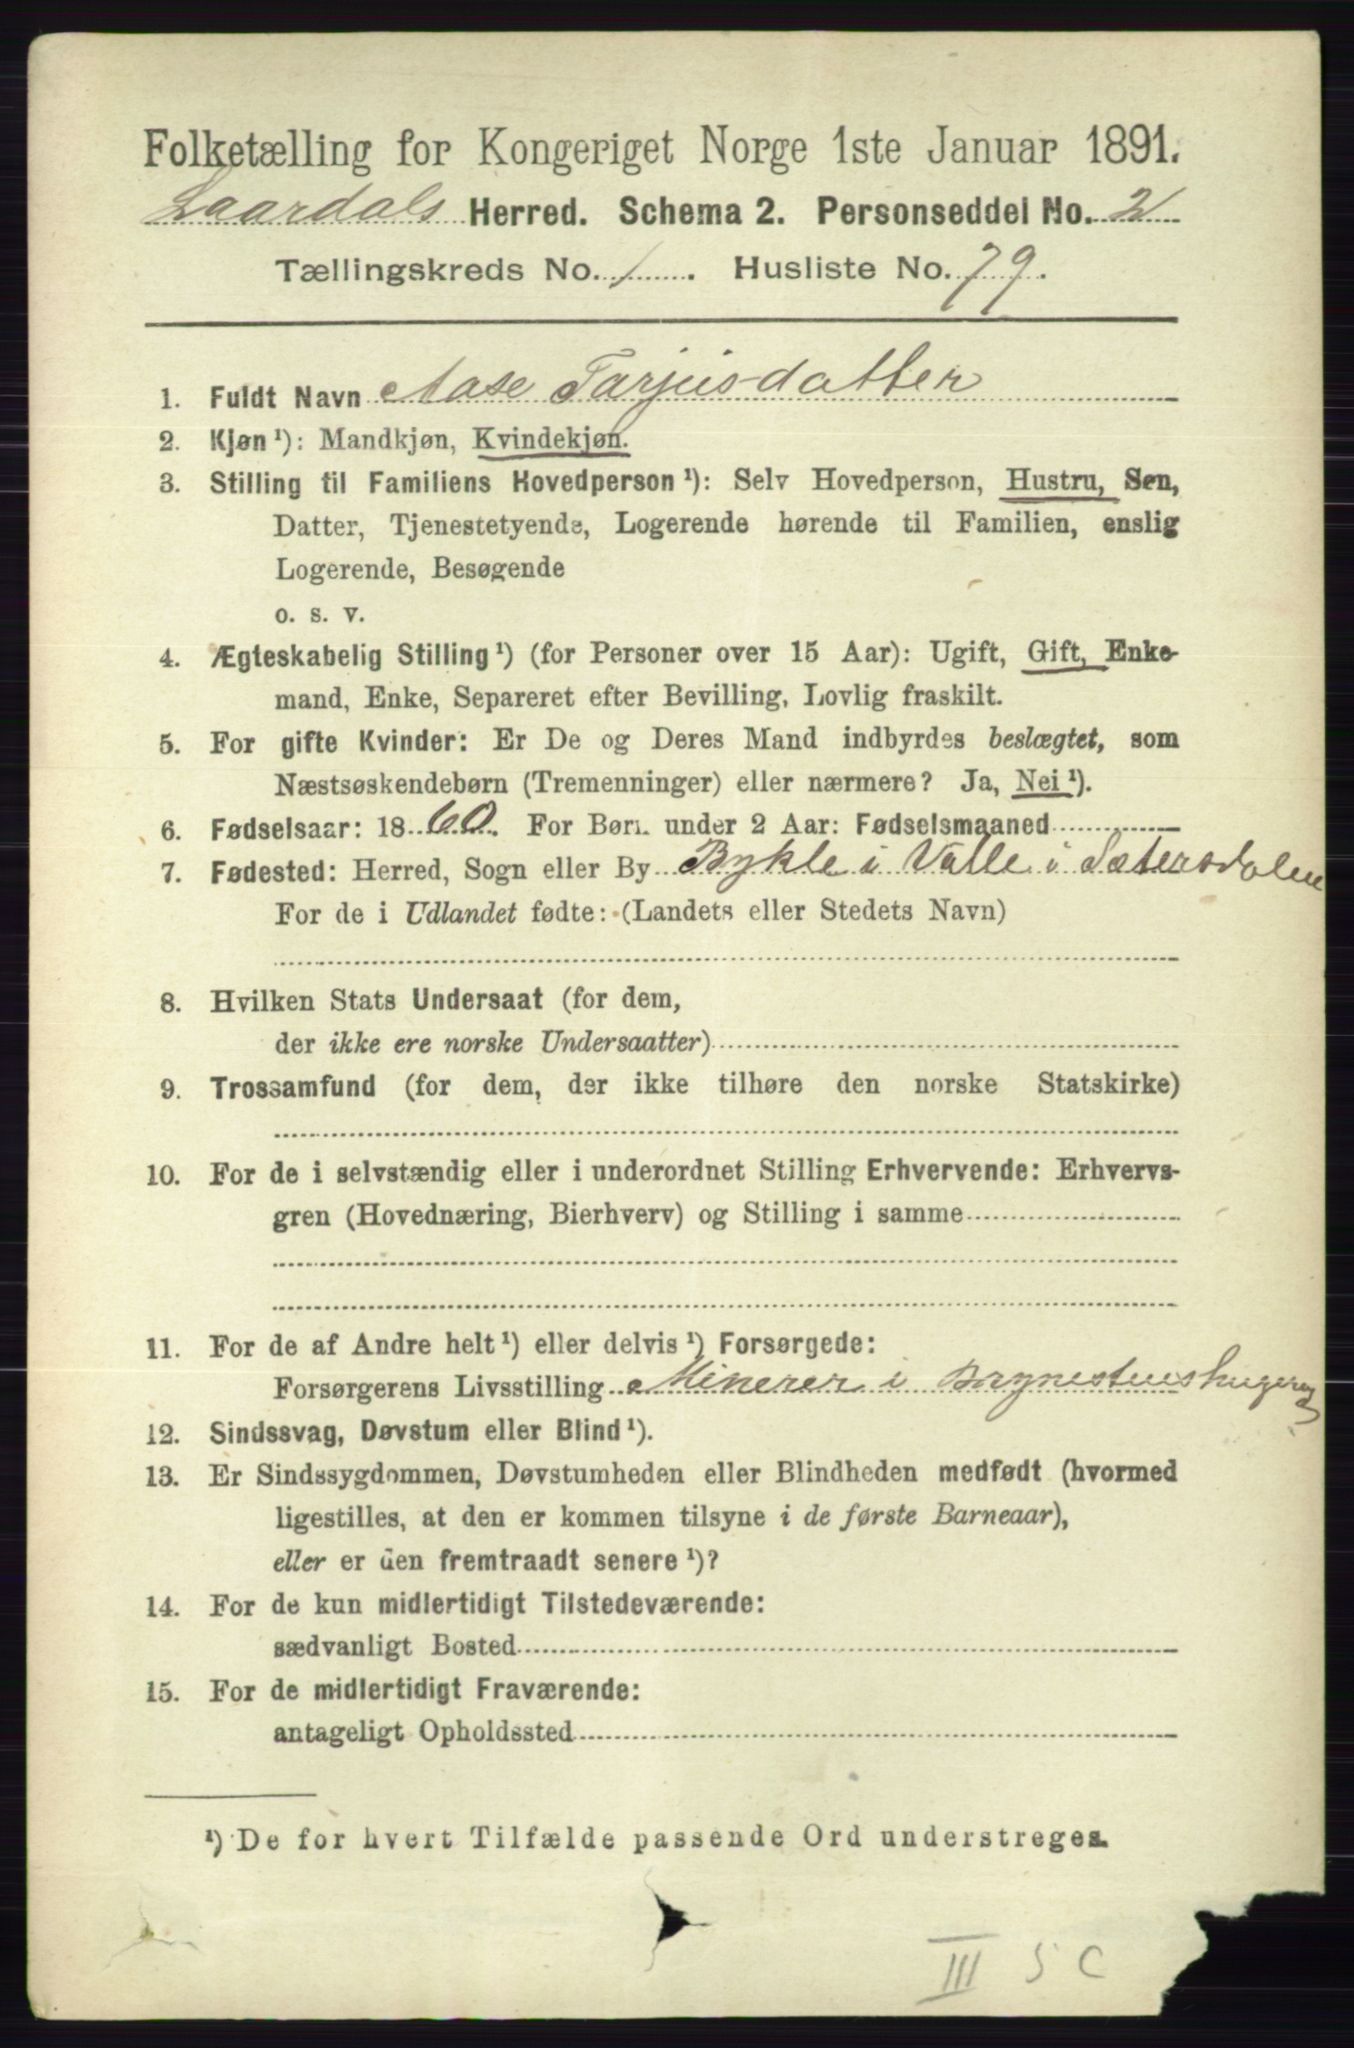 Folketælling for Kongeriget Norge 1ste Januar 1891.
Laardals Herred. Schema 2. Personseddel No. 2
Tællingskreds No. 1. Husliste No. 79.
1. Fuldt Navn Aase Tarjeisdatter
2. Kjøn ¹): Mandkjøn, Kvindekjøn.
3. Stilling til Familiens Hovedperson ¹): Selv Hovedperson, Hustru, Søn,
Datter, Tjenestetyende, Logerende hørende til Familien, enslig
Logerende, Besøgende
o. s. v.
4. Ægteskabelig Stilling ¹) (for Personer over 15 Aar): Ugift, Gift, Enke-
mand, Enke, Separeret efter Bevilling, Lovlig fraskilt.
5. For gifte Kvinder: Er De og Deres Mand indbyrdes beslægtet, som
Næstsøskendebørn (Tremenninger) eller nærmere? Ja, Nei ¹).
6. Fødselsaar: 1860. For Børn under 2 Aar: Fødselsmaaned
7. Fødested: Herred, Sogn eller By Bykle i Valle i Sætersdalen
For de i Udlandet fødte: (Landets eller Stedets Navn)
8. Hvilken Stats Undersaat (for dem,
der ikke ere norske Undersaatter)
9. Trossamfund (for dem, der ikke tilhøre den norske Statskirke)
10. For de i selvstændig eller i underordnet Stilling Erhvervende: Erhvervs-
gren (Hovednæring, Bierhverv) og Stilling i samme
11. For de af Andre helt ¹) eller delvis ¹) Forsørgede:
Forsørgerens Livsstilling Minerer i
12. Sindssvag, Døvstum eller Blind ¹).
13. Er Sindssygdommen, Døvstumheden eller Blindheden medfødt (hvormed
ligestilles, at den er kommen tilsyne i de første Barneaar),
eller er den fremtraadt senere ¹)?
14. For de kun midlertidigt Tilstedeværende:
sædvanligt Bosted
15. For de midlertidigt Fraværende:
antageligt Opholdssted
¹) De for hvert Tilfælde passende Ord understreges.
III 5 C